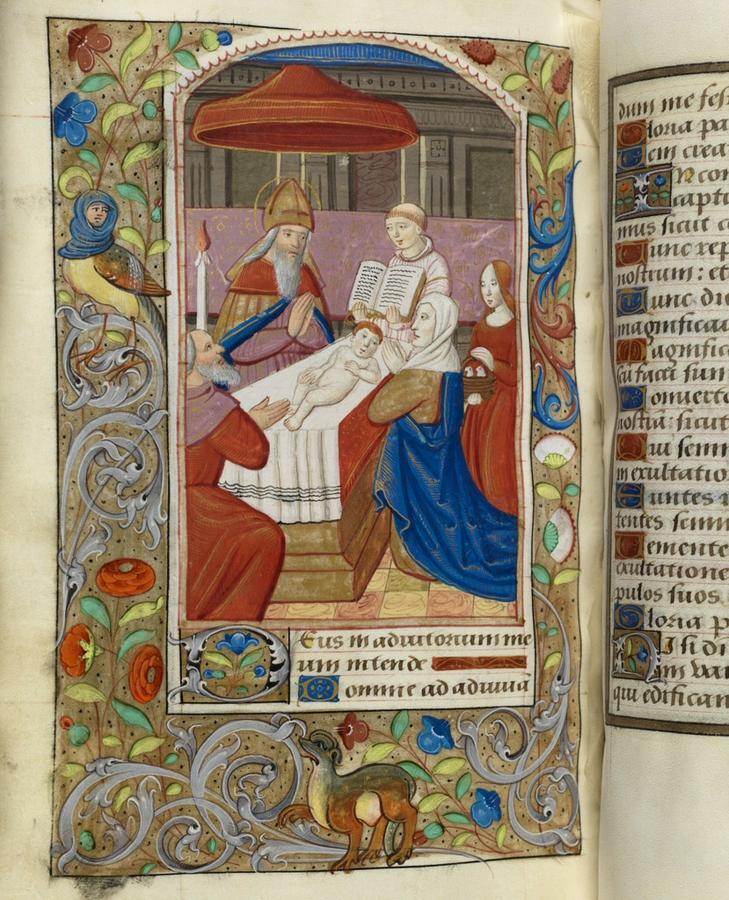 Deus in adiutorium me
um intende
Domine ad adiuva
dum me fes
Gloria pa
Veni crea
In con
capti
mus sicut c
Tunc rep
nostrum: et
Tunc dic
magnificau
Magnific
sum
Conuerte
nostrā: sicut
Qui semi
in exultatio
Euntes
tentes semin
exultatione
pulos suos.
Gloria p
Nisi di
in van
qui edifican